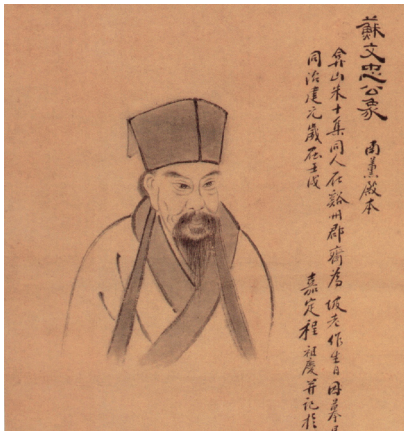 蘇文忠公象 南薰殿本
弇山朱十集同人在谿州郡齋為坡老作生日因摹
同治建元歲在壬戌 嘉定程祖慶并記於